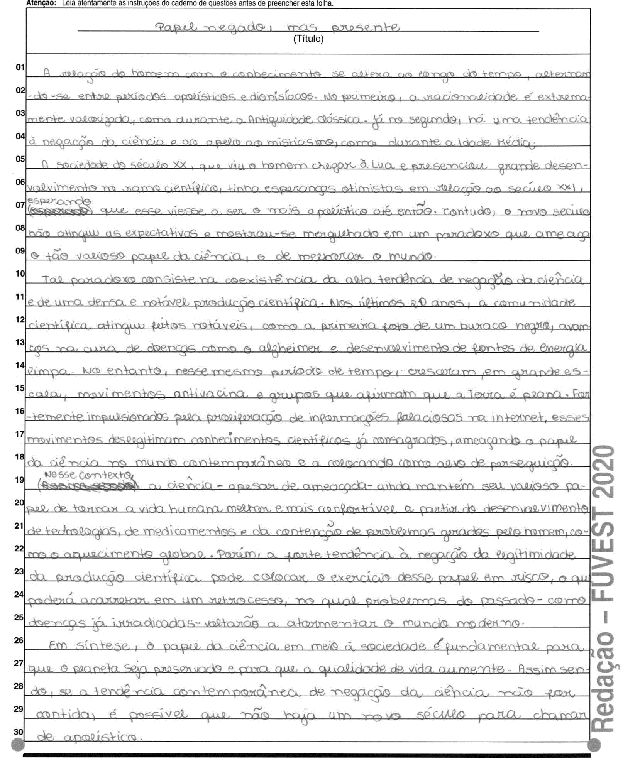 Atenção: Leia atentamente as instruções do caderno de questões antes de preencher esta folha.
Papel negado, mas presente
(Título)
01 A relação do homem com o conhecimento se altera ao longo do tempo, alternan
02 -do-se entre períodos apolísticos e dionisíacos. No primeiro, a racionalidade é extrema-
03 mente valorizada, como durante a Antiguidade Clássica. Já no segundo, há uma tendência
04 à negação da ciência e ao apelo ao misticismo, como durante a Idade Média.
05 A sociedade do século XX, que viu o homem chegar à Lua e presenciou grande desen-
06 volvimento no ramo científico, tinha esperanças otimistas em relação ao século XXI,
07 esperando que esse viesse a ser o mais apolístico até então. Contudo, o novo século
08 não atingiu as expectativas e mostrou-se mergulhado em um paradoxo que ameaça
09 o tão valioso papel da ciência, o de melhorar o mundo.
10 Tal paradoxo consiste na coexistência da alta tendência de negação da ciência
11 e de uma densa e notável produção científica. Nos últimos 20 anos, a comunidade
12 científica atingiu feitos notáveis, como a primeira foto de um buraco negro, avan
13 ços na cura de doenças como o alzheimer e desenvolvimento de fontes de energia
14 limpa. No entanto, nesse mesmo período de tempo, cresceram, em grande es-
15 cala, movimentos antivacina e grupos que afirmam que a Terra é plana. For
16 -temente impulsionados pela proliferação de informações falaciosas na internet, esses
17 movimentos deslegitimam conhecimentos científicos já consagrados, ameaçando o papel
18 da ciência no mundo contemporâneo e a colocando como alvo de perseguição.
19 Nesse contexto, a ciência - apesar de ameaçada - ainda mantém seu valioso pa-
20 pel de tornar a vida humana melhor e mais confortável a partir do desenvolvimento
21 de technologias, de medicamentos e da contenção de problemas gerados pelo homem, co-
22 mo o aquecimento global. Porém, a forte tendência à negação da legitimidade
23 da produção científica pode colocar o exercício desse papel em risco, o que
24 poderá acarretar em um retrocesso, no qual problemas do passado - como
25 doenças já irradicadas - voltarão a atormentar o mundo moderno.
26 Em síntese, o papel da ciência em meio à sociedade é fundamental para
27 que o planeta seja preservado e para que a qualidade de vida aumente. Assim sen-
28 do, se a tendência contemporânea de negação da ciência não for
29 contida, é possível que não haja um novo século para chamar
30 de apolístico.
Redação – FUVEST 2020